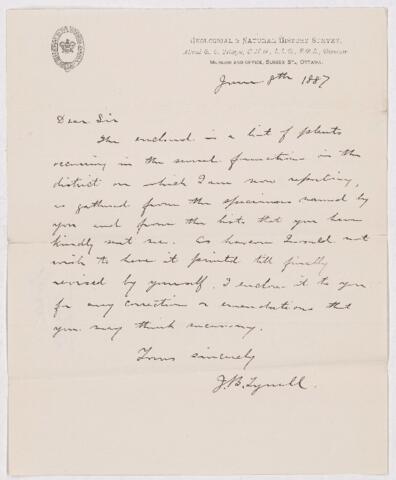 GEOLOGICAL & NATURAL HISTORY SURVEY.
Alfred R. C. Selwyn, C.M.G., L.L.D., F.R.S., Director
MUSEUM AND OFFICE, SUSSEX ST., OTTAWA.
June 8th 1887
Dear Sir
The enclosed is a list of plants
occurring in the several formations in the
district on which I am now reporting,
as gathered from the specimens named by
you and from the lists that you have
kindly sent me. As however I would not
wish to have it printed till finally
revised by yourself, I enclose it to you
for any correction or emendations that
you may think necessary.
Yours sincerely
J. B. Tyrrell.